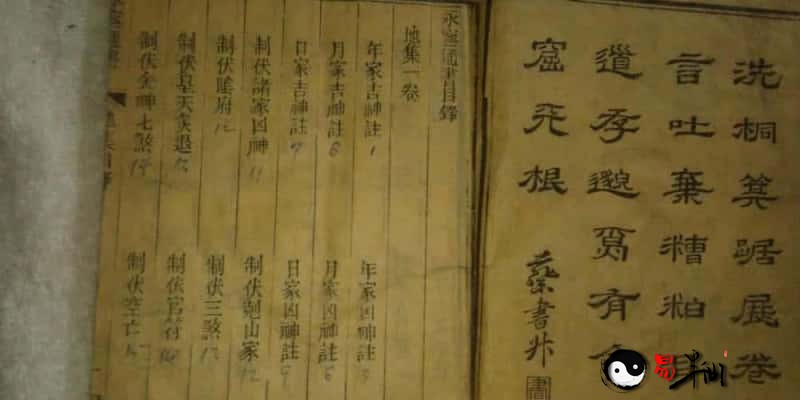 洗桐箕踞展卷
言吐棄糟粕
道存邈有
窟天根
書
永寧通書目錄
地集一卷
年家吉神註 1 年家凶神註
月家吉神註 6 月家凶神註 6
日家吉神註 日家凶神註 9
制伏諸家凶神 11 制伏剋山家 12
制伏隂府 12 制伏三煞 13
制伏皇天炙退 制伏官符 14
制伏金神七煞 14 制伏空亡
易半仙